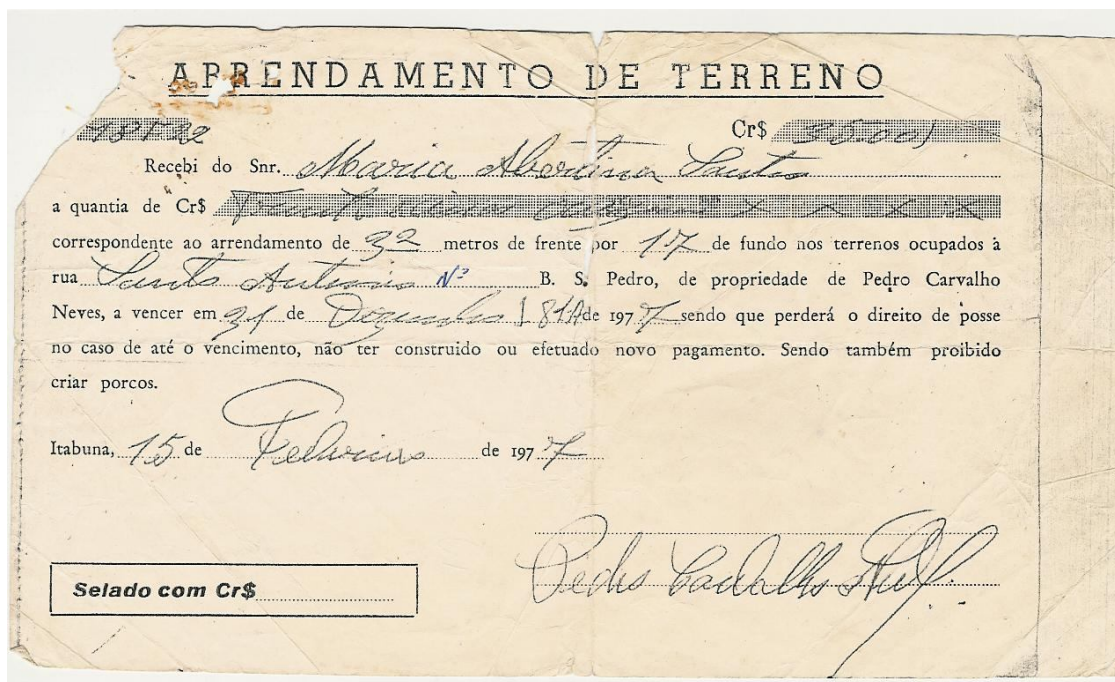 ARRENDAMENTO DE TERRENO
Cr$ 35.00
Recebi do Snr. Maria Abertina Santos
a quantia de Cr$ Trinta cinco x x x x
correspondente ao arrendamento de 32 metros de frente por 17 de fundo nos terrenos ocupados à
rua Santo Antonio Nº B. S. Pedro, de propriedade de Pedro Carvalho
Neves, a vencer em 31 de Dezembro de 1977 sendo que perderá o direito de posse
no caso de até o vencimento, não ter construido ou efetuado novo pagamento. Sendo também proibido
criar porcos.
Itabuna, 15 de Fevereiro de 1977
Pedro Carvalho
Selado com Cr$